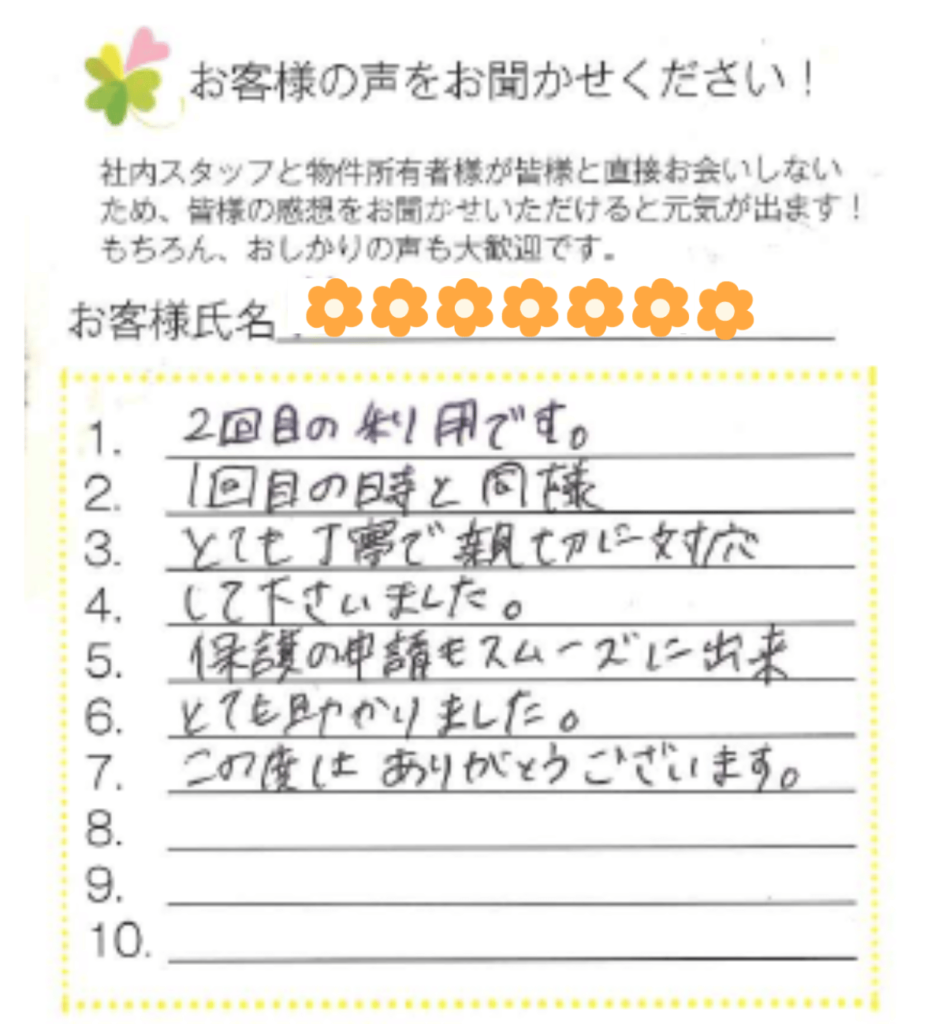 お客様の声をお聞かせください！
社内スタッフと物件所有者様が皆様と直接お会いしない
ため、皆様の感想をお聞かせいただけると元気が出ます！
もちろん、おしかりの声も大歓迎です。
お客様氏名
1. 2回目の利用です。
2. 1回目の時と同様
3. とても丁寧で親切に対応
4. して下さいました。
5. 保護の申請もスムーズに出来
6. とても助かりました。
7. この度はありがとうございます。
8.
9.
10.